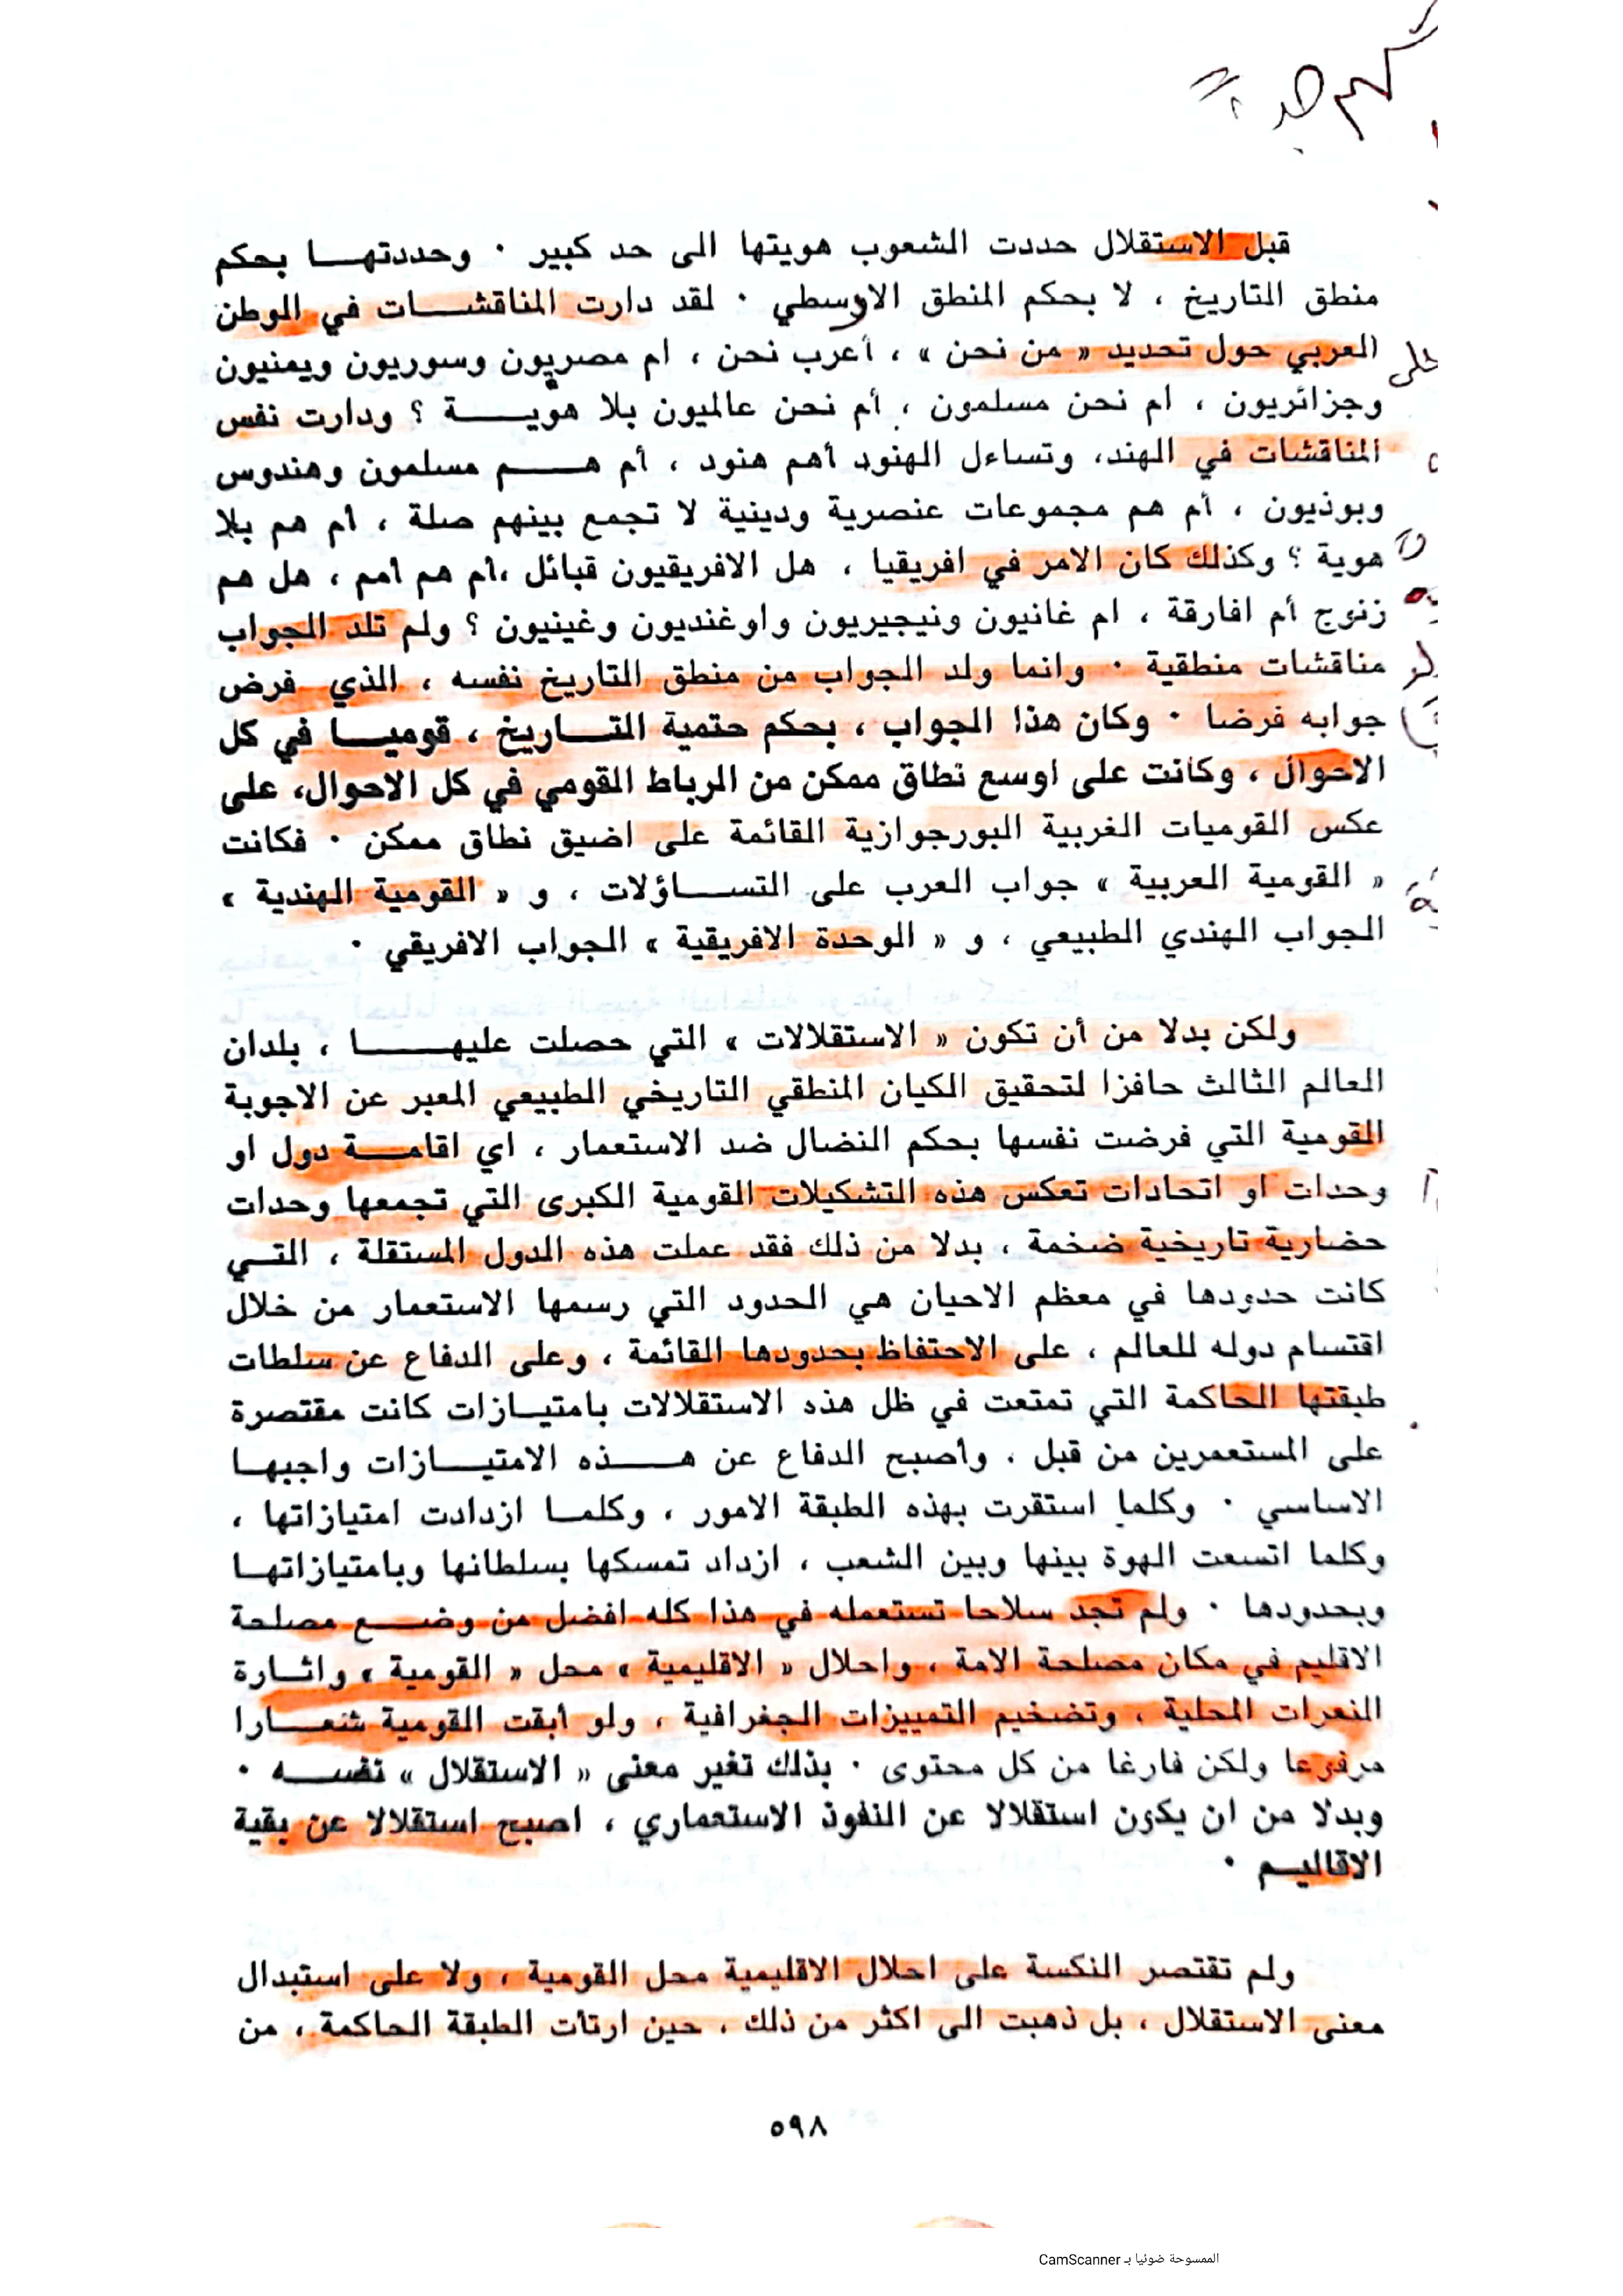 مهم جدا
قبل الاستقلال حددت الشعوب هويتها الى حد كبير ٠ وحددتهـــا بحكم
منطق التاريخ ، لا بحكم المنطق الاوسطي ٠ لقد دارت المناقشـــات في الوطن
العربي حول تحديد « من نحن » ، أعرب نحن ، ام مصريون وسوريون ويمنيون
وجزائريون ، ام نحن مسلمون ، أم نحن عالميون بلا هويـــة ؟ ودارت نفس
المناقشات في الهند، وتساءل الهنود أهم هنود ، أم هـــم مسلمون وهندوس
وبوذيون ، أم هم مجموعات عنصرية ودينية لا تجمع بينهم صلة ، أم هم بلا
هوية ؟ وكذلك كان الامر في افريقيا ، هل الافريقيون قبائل ،أم هم أمم ، هل هم
زنوج أم افارقة ، ام غانيون ونيجيريون واوغنديون وغينيون ؟ ولم تلد الجواب
مناقشات منطقية ٠ وانما ولد الجواب من منطق التاريخ نفسه ، الذي فرض
جوابه فرضا ٠ وكان هذا الجواب ، بحكم حتمية التـــاريخ ، قوميـــا في كل
الاحوال ، وكانت على اوسع نطاق ممكن من الرباط القومي في كل الاحوال، على
عكس القوميات الغربية البورجوازية القائمة على اضيق نطاق ممكن ٠ فكانت
« القومية العربية » جواب العرب على التســـاؤلات ، و « القومية الهندية »
الجواب الهندي الطبيعي ، و « الوحدة الافريقية » الجواب الافريقي ٠
ولكن بدلا من أن تكون « الاستقلالات » التي حصلت عليهـــا ، بلدان
العالم الثالث حافزا لتحقيق الكيان المنطقي التاريخي الطبيعي المعبر عن الاجوبة
القومية التي فرضت نفسها بحكم النضال ضد الاستعمار ، اي اقامـــة دول او
وحدات او اتحادات تعكس هذه التشكيلات القومية الكبرى التي تجمعها وحدات
حضارية تاريخية ضخمة ، بدلا من ذلك فقد عملت هذه الدول المستقلة ، التـــي
كانت حدودها في معظم الاحيان هي الحدود التي رسمها الاستعمار من خلال
اقتسام دوله للعالم ، على الاحتفاظ بحدودها القائمة ، وعلى الدفاع عن سلطات
طبقتها الحاكمة التي تمتعت في ظل هذه الاستقلالات بامتيـــازات كانت مقتصرة
على المستعمرين من قبل ، وأصبح الدفاع عن هـــذه الامتيـــازات واجبهـــا
الاساسي ٠ وكلما استقرت بهذه الطبقة الامور ، وكلمـــا ازدادت امتيازاتها ،
وكلما اتسعت الهوة بينها وبين الشعب ، ازداد تمسكها بسلطانها وبامتيازاتهـــا
وبحدودها ٠ ولم تجد سلاحا تستعمله في هذا كله افضل من وضـــع مصلحة
الاقليم في مكان مصلحة الامة ، واحلال « الاقليمية » محل « القومية » واثـــارة
النعرات المحلية ، وتضخيم التمييزات الجغرافية ، ولو أبقت القومية شعـــارا
مرفوعا ولكن فارغا من كل محتوى ٠ بذلك تغير معنى « الاستقلال » نفســـه ٠
وبدلا من ان يكون استقلالا عن النفوذ الاستعماري ، اصبح استقلالا عن بقية
الاقاليـــم ٠
ولم تقتصر النكسة على احلال الاقليمية محل القومية ، ولا على استبدال
معنى الاستقلال ، بل ذهبت الى اكثر من ذلك ، حين ارتأت الطبقة الحاكمة ، من
٥٩٨
الممسوحة ضوئيا بـ CamScanner